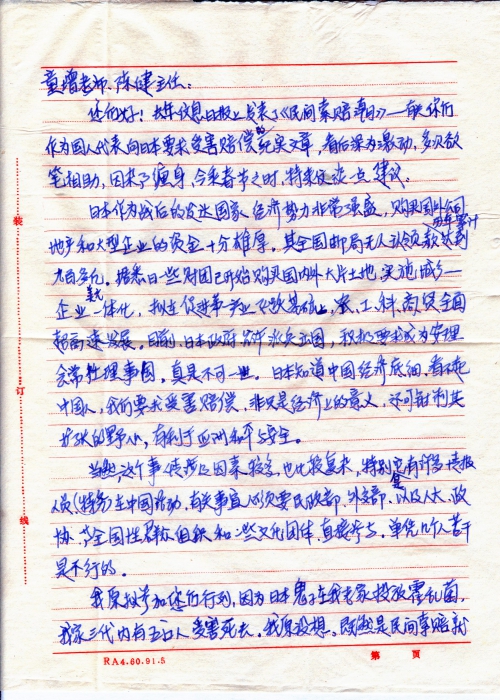 童增老师、陈健主任：
您们好！去年信息日报上发表了《民间索赔率日》——有关你们
作为国人代表向日本要求受害赔偿的纪实文章，看后深为激动，多次欲
笔相助，因求了缠身，今乘春节之时，特来信谈一点建议。
日本作为战后的发达国家，经济势力非常强盛，购买国外公司
地产和大型企业的资金十分雄厚。其全国邮局无人认领款历年累计达到
九百多亿。据悉日一些财团已开始购买国内外大片土地，实施城乡一
企业一体化，拟在促进事业下放基础上，农、工、科、商、贸全面
超高速发展。目前，日本政府派兵出国，积极要求成为安理
会常任理事国，真是不可一世。日本知道中国经济底细，看不起
中国人，我们要求受害赔偿，非只是经济上的意义，还可针制其
扩张的野心，有利于亚洲和平与安全。
当然，这个事情涉及因素较多，也比较复杂，特别是会有许多情报
人员(特务)在中国活动，有关事宜必须要民政部、外交部、以及人大、政
协等全国性群众组织和一些文化团体直接参与。单凭几个人苦干
是不行的。
我原拟参加您们行列，因为日本鬼子在我老家投放霍乱菌，
我家三代内有五口人受害死去。我原设想，既然是民间索赔就
装
订
线
RA4.80.91.5
第 页